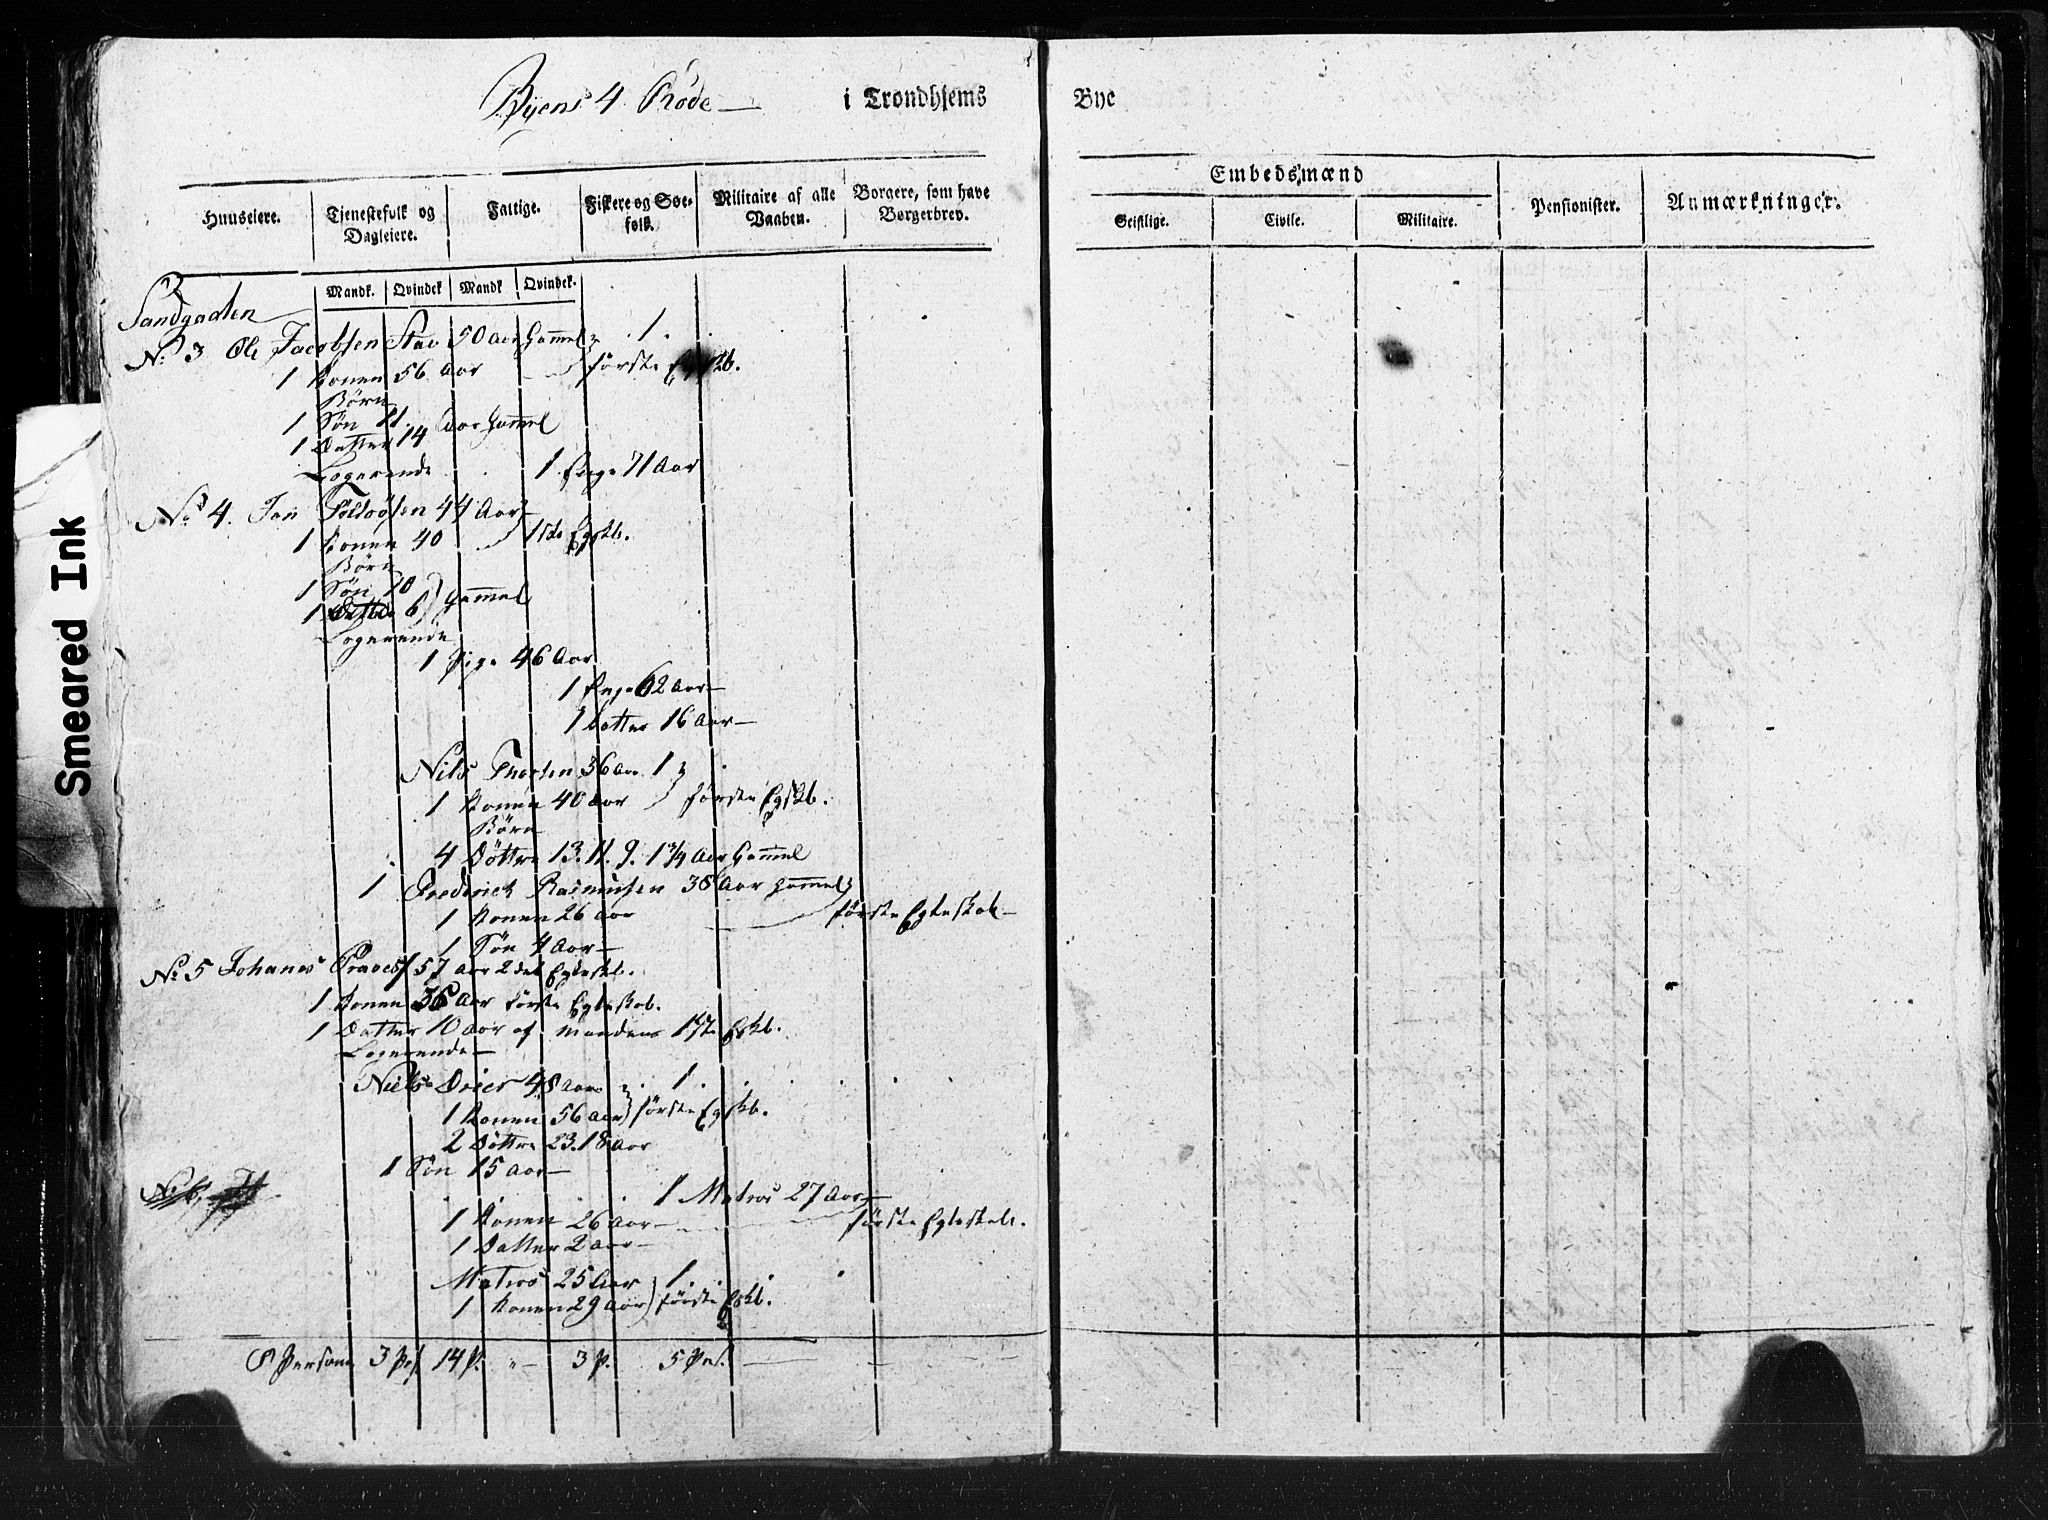 Byens 4 Rode — i Trondhjems Bye
Huuseiere. Tjenestefolk og Dagleiere. Fattige. Fiskere og Søefolk. Militaire af alle Vaaben. Borgere, som have Borgerbrev. Embedsmænd Pensionister. Anmærkninger.
Geistlige. Civile. Militaire.
Mandk. Qvindek Mandk Qvindek.
Sandgaden
No 3 Ole Jacobsen Stav 50 Aar Gammel 1.
1 Konen 56 Aar første Egskb.
Børn
1 Søn 11. Aar Gammel
1 Datter 14
Logerende 1 Enge 71 Aar
No 4. Jon 44 Aar
1 Konen 40 1ste Egskb.
Børn
1 Søn 10
1 Datter 6 Gammel
Logerende
1 Pige 46 Aar
1 Enge 62 Aar
1 Datter 16 Aar
Nils 36 Aar 1
1 Konen 40 Aar første Egskb.
Børn
4 Døttre 13. 11. 9. 1 3/4 Aar Gammel
1 Frederick Rasmusen 38 Aar Gammel
1 Konen 26 Aar første Egteskab
1 Søn 4 Aar
No 5 Johanes 57 Aar 2det Egteskb.
1 Konen 36 Aar første Egteskab.
1 Datter 10 Aar af Mandens 1ste Egskb.
Logerende
Niels Dreier 48 Aar 1.
1 Konen 56 Aar første Egskb.
2 Døttre 23. 18 Aar
1 Søn 15 Aar
No 6.
1 Matros 27 Aar
1 Konen 26 Aar første Egteskab.
1 Datter 2 Aar
Matros 25 Aar 1.
1 Konen 29 Aar første Eskb.
8 Persone 3 Ps 14 P. „ 3 P. 5 Ps.
Smeared Ink